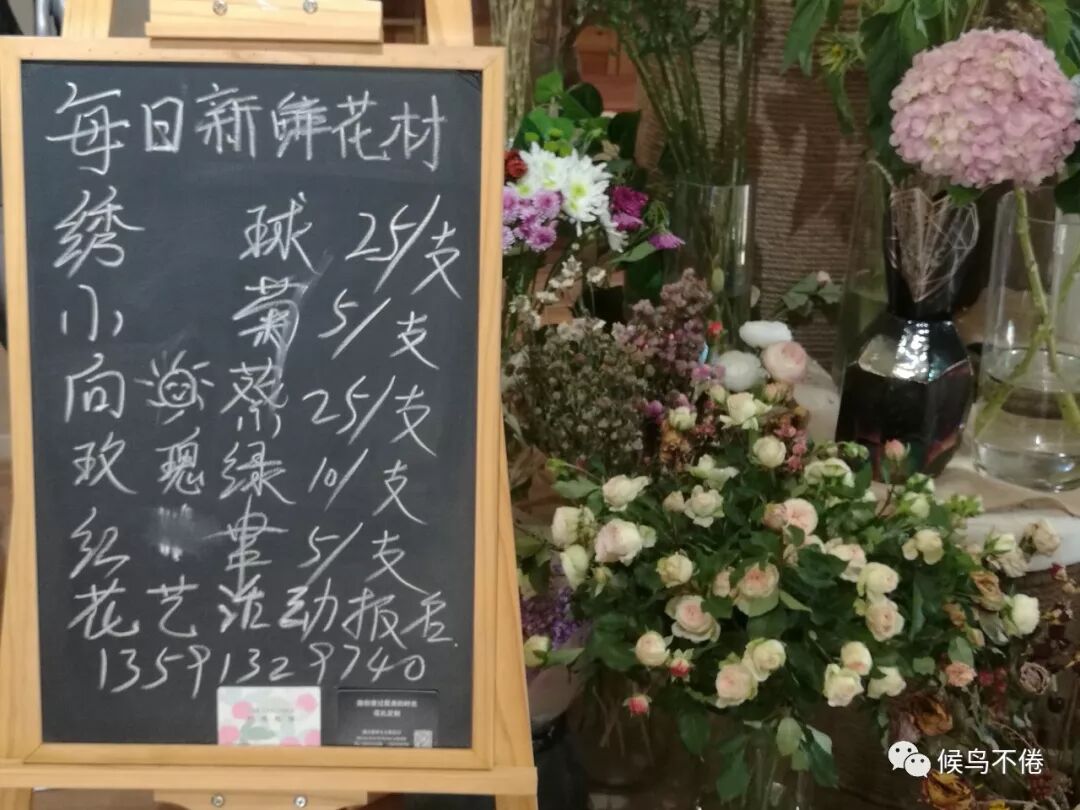 每日新鲜花材
绣 球 25/支
小 菊 5/支
向 葵 25/支
玫瑰绿 10/支
红 掌 5/支
花艺活动报名
13591329740
候鸟不倦